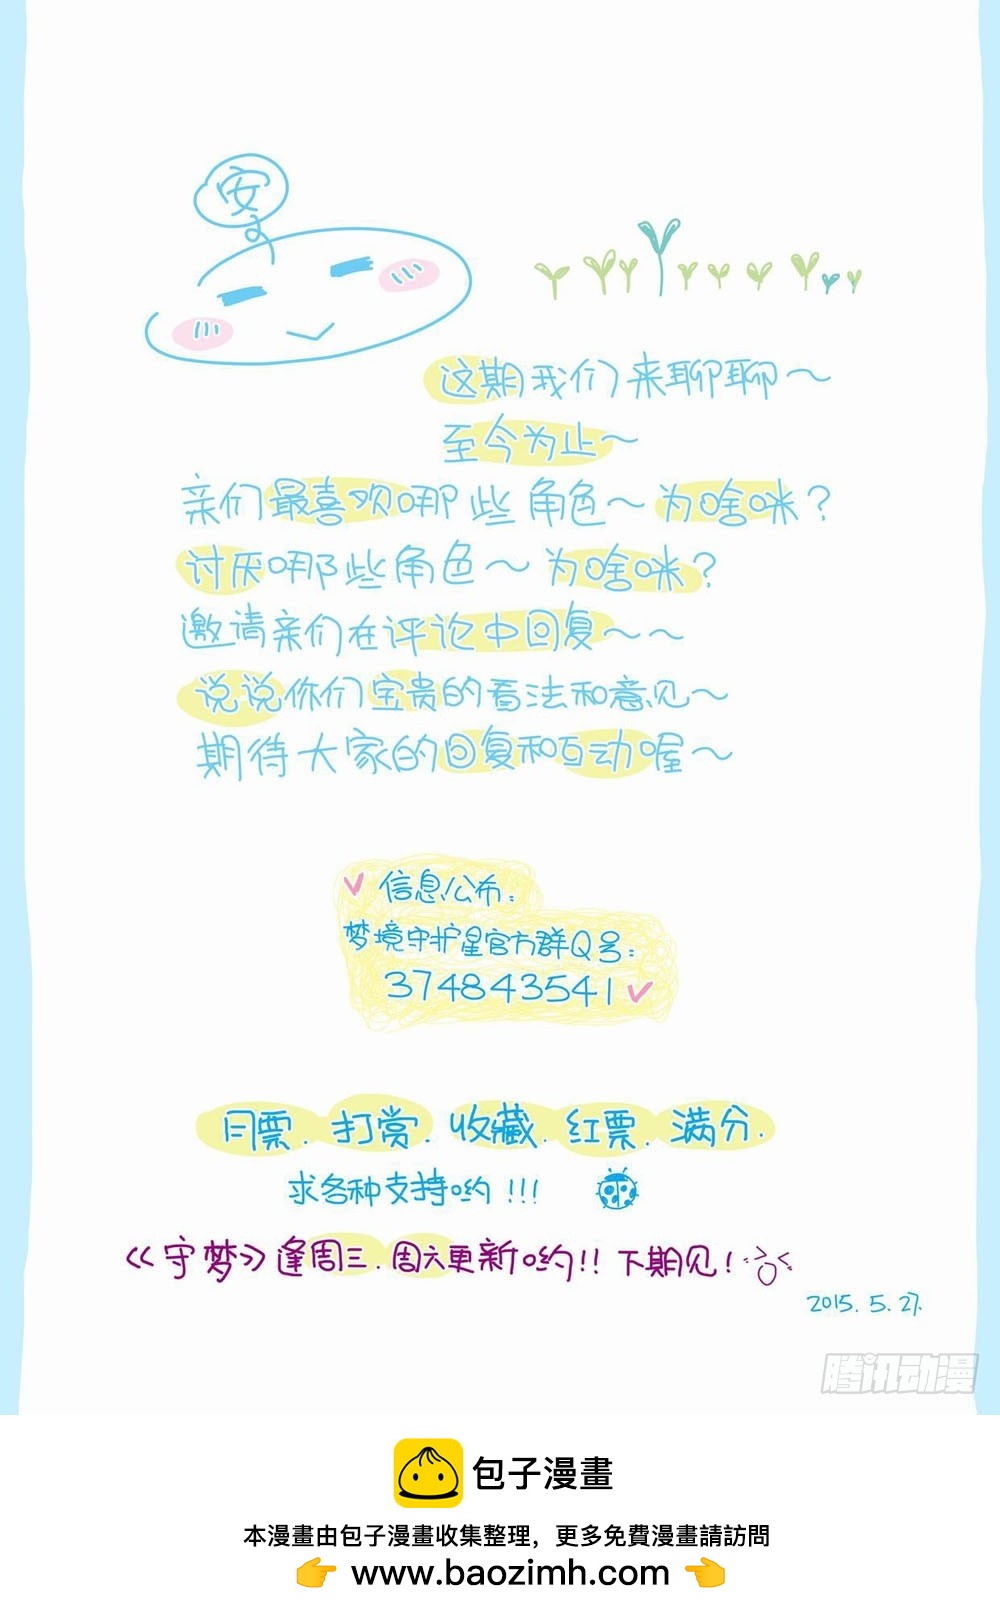 安
这期我们来聊聊～
至今为止～
亲们最喜欢哪些角色～为啥咪？
讨厌哪些角色～为啥咪？
邀请亲们在评论中回复～～
说说你们宝贵的看法和意见～
期待大家的回复和互动喔～
信息公布：
梦境守护星官方群Q号：
374843541
月票.打赏.收藏.红票.满分.
求各种支持哟!!!
《守梦》逢周三.周六更新哟!!下期见!
2015.5.27.
腾讯动漫
包子漫畫
本漫畫由包子漫畫收集整理，更多免費漫畫請訪問
👉 www.baozimh.com 👈